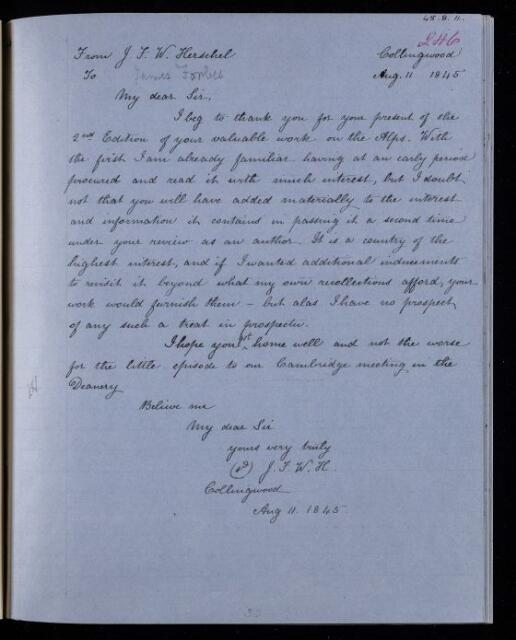 45.8.11.
246
From J. F. W. Herschel Collingwood
To James Forbes Aug. 11 1845
My dear Sir,
I beg to thank you for your present of the
2nd Edition of your valuable work on the Alps. With
the first I am already familiar having at an early period
procured and read it with much interest, but I doubt
not that you will have added materially to the interest
and information it contains in passing it a second time
under your review as an author. It is a country of the
highest interest, and if I wanted additional inducements
to revisit it beyond what my own recollections afford, your
work would furnish them – but alas I have no prospect
of any such a treat in prospectu.
I hope you gt home well and not the worse
for the little episode to our Cambridge meeting in the
Deanery
Believe me
My dear Sir
yours very truly
J. F. W. H.
Collingwood
Aug 11. 1845